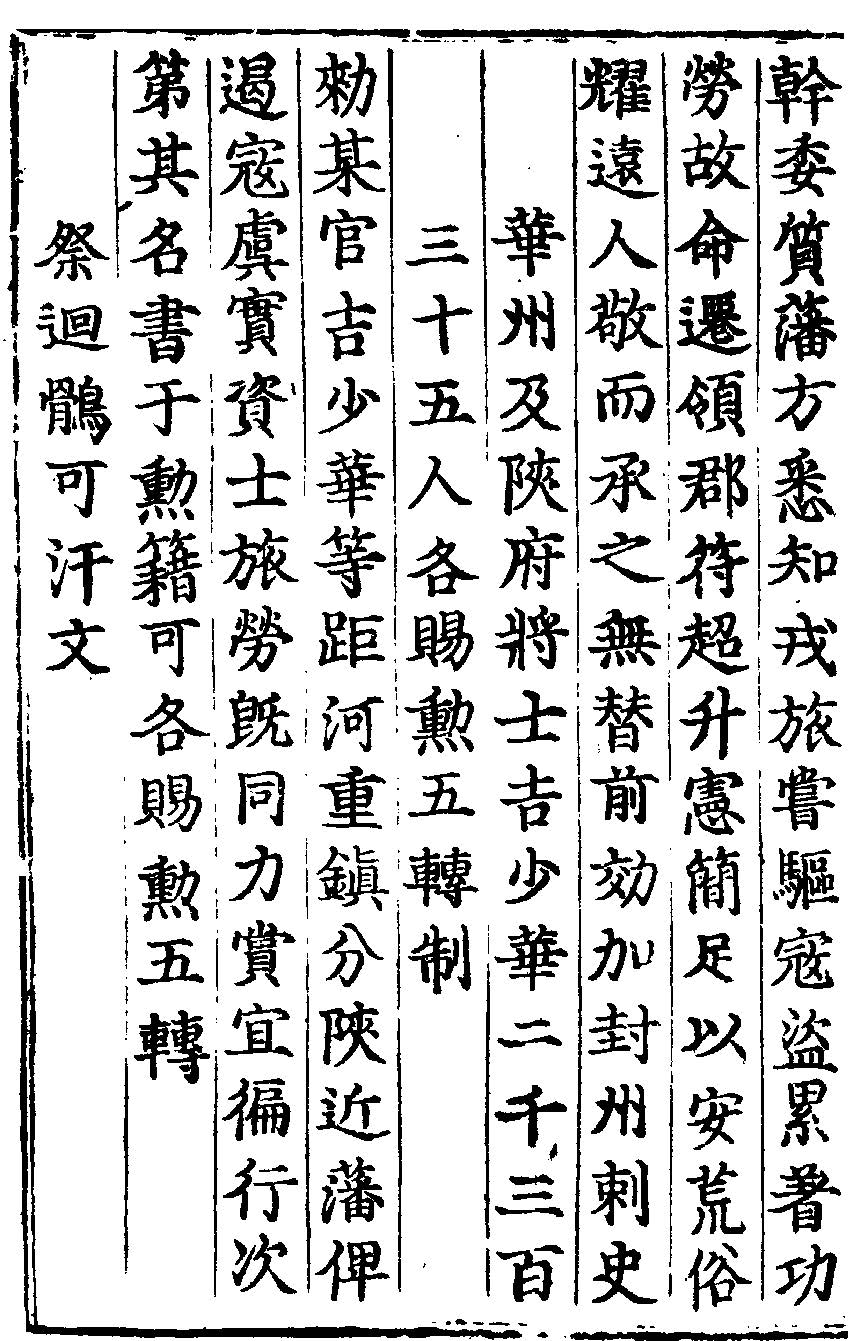 幹委質藩方悉知戎旅嘗驅寇盜累著功
勞故命遷領郡符超升憲簡足以安荒俗
耀遠人敬而承之無替前効加封州刺史
華州及陝府將士吉少華二千三百
三十五人各賜勲五轉制
勑某官吉少華等距河重鎭分陝近藩俾
遏寇虞實資士旅勞旣同力賞宜徧行次
第其名書于勲籍可各賜勲五轉
祭迴鶻可汗文